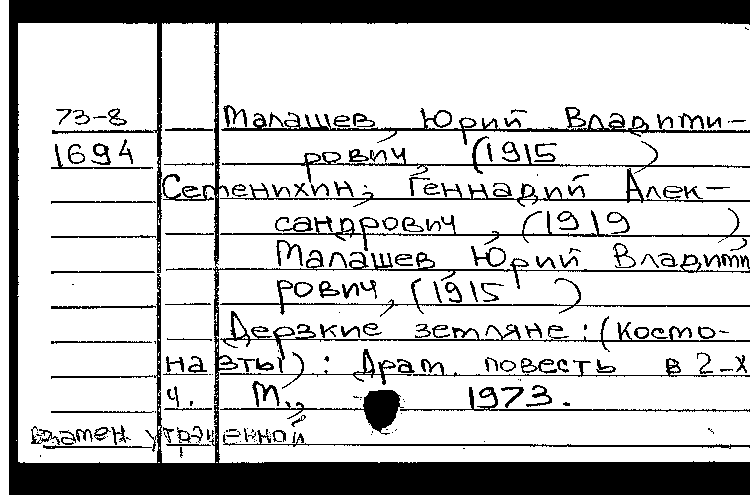 73-8 Малашев, Юрий Владими-
1694 рович, (1915 )
Семенихин, Геннадий Алек-
сандрович, (1919 )
Малашев Юрий Владими
рович, (1915 )
Дерзкие земляне: (Космо-
навты) : Драм. повесть в 2-х
ч. М., 1973.
взамен утраченной